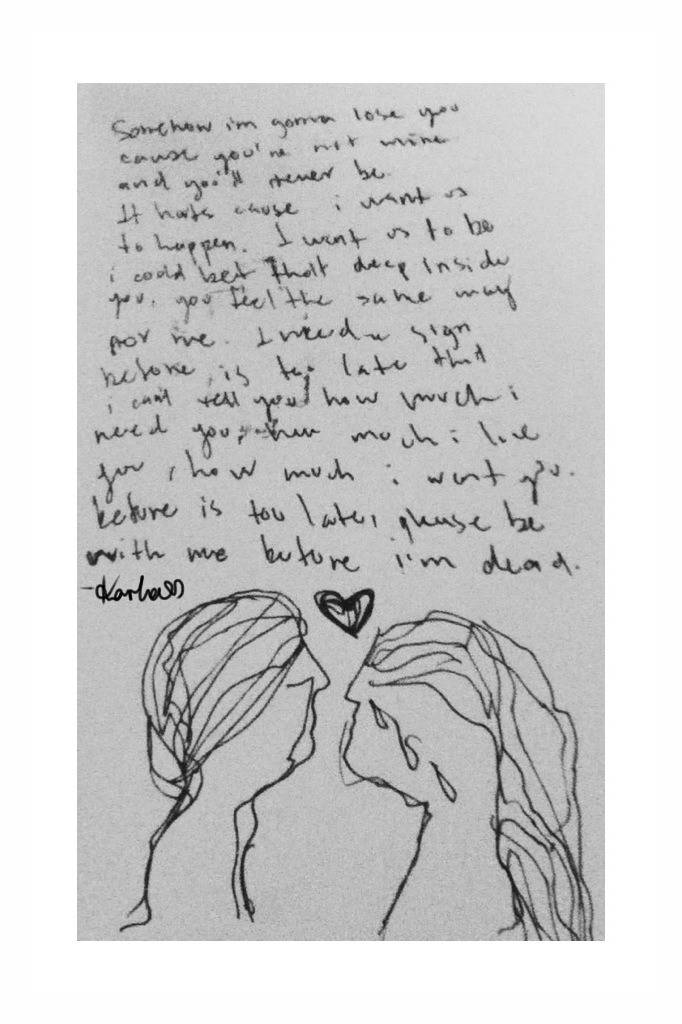 Somehow i'm gonna lose you
cause you're not mine
and you'll never be.
It hurts cause i want us
to happen. I want us to be
i could bet that deep inside
you, you feel the same way
por me. I need a sign
before is too late that
i can't tell you how much i
need you, how much i love
you, how much i want you.
before is too late, please be
with me before i'm dead.